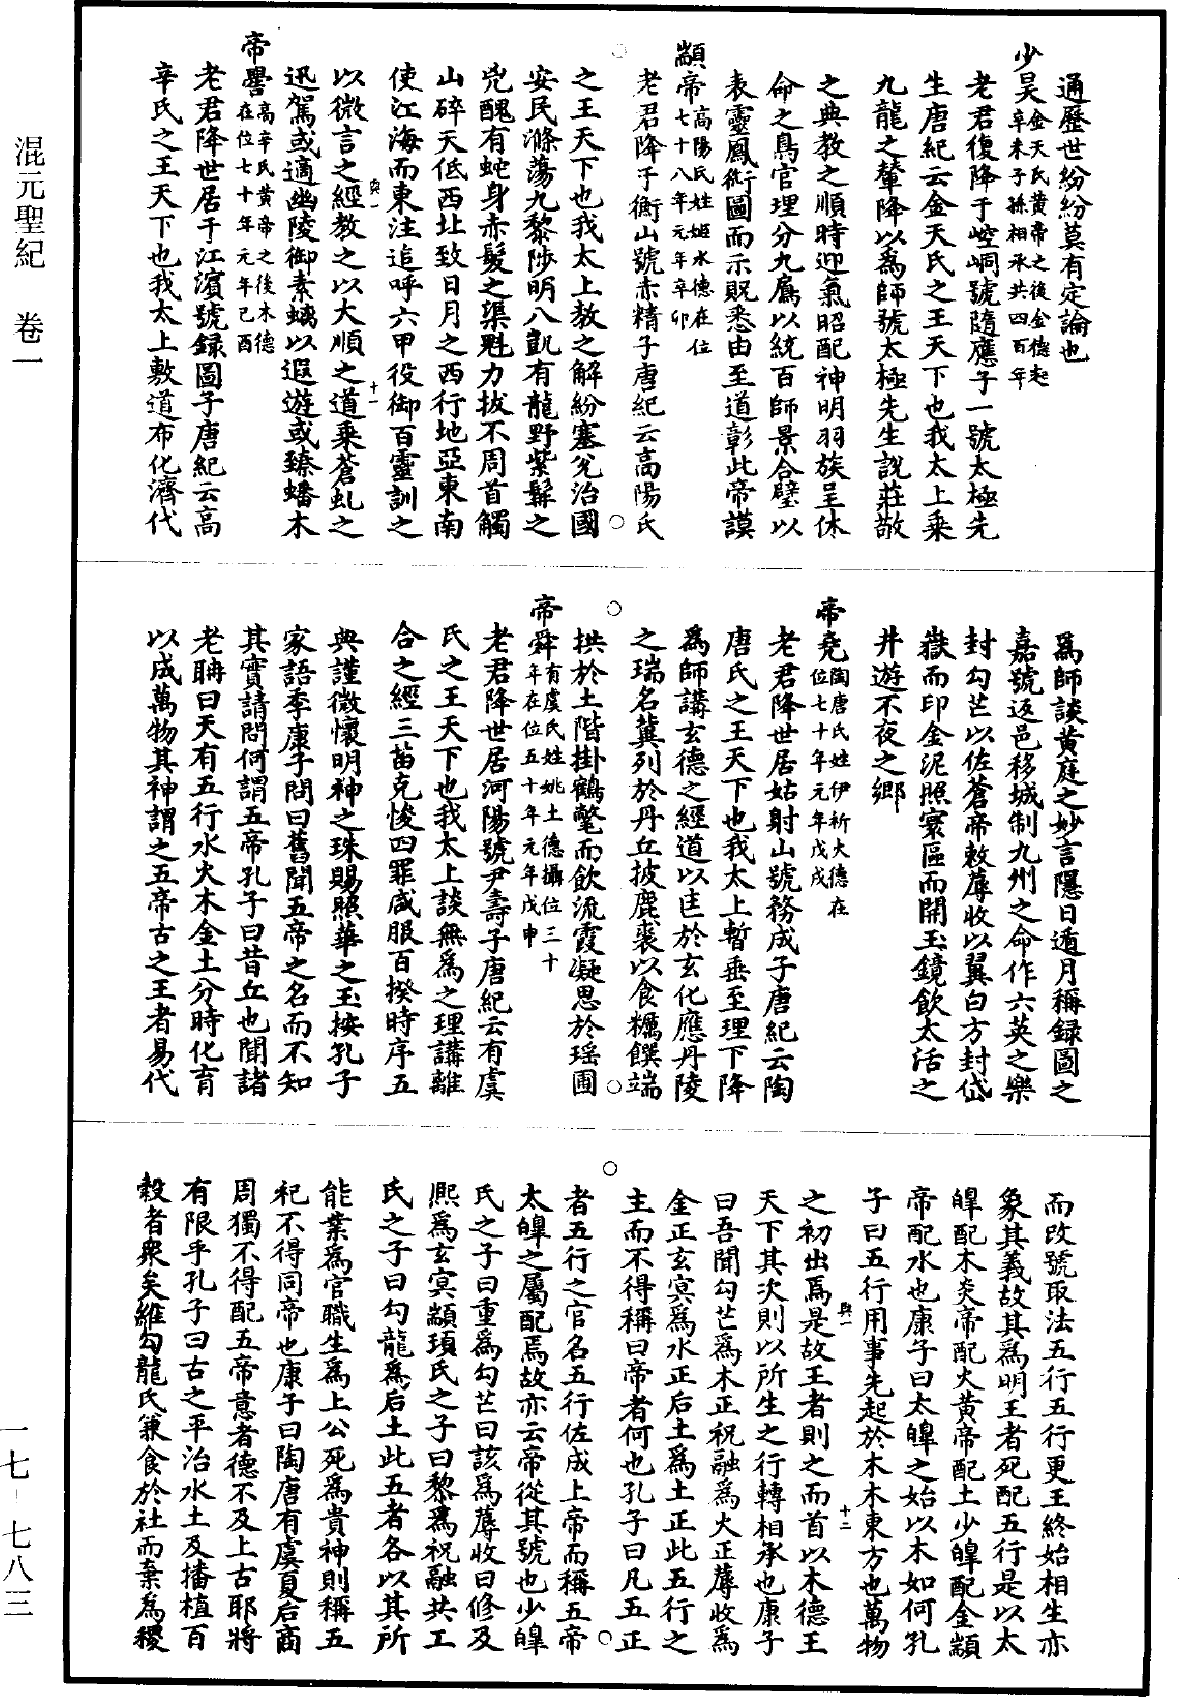 混元聖紀　卷一
通歷世紛紛莫有定論也
少昊金天氏黃帝之後金德起
辛未子孫相承共四百年
老君復降于崆峒號隨應子一號太極先
生唐紀云金天氏之王天下也我太上乘
九龍之輦降以為師號太極先生說莊敬
之典教之順時迎氣昭配神明羽族呈休
命之鳥官理分九鳸以統百師景合璧以
表靈鳳銜圖而示貺悉由至道彰此帝謨
顓帝高陽氏姓姬水德在位
七十八年元年辛卯
老君降于衡山號赤精子唐紀云高陽氏
之王天下也我太上教之解紛塞兌治國
安民滌蕩九黎陟明八凱有龍野紫髯之
兇醜有蛇身赤髮之渠魁力拔不周首觸
山碎天低西北致日月之西行地亞東南
使江海而東注追呼六甲役御百靈訓之
以微言之經教之以大順之道乘蒼虬之
迅駕或適幽陵御素螭以遐遊或臻蟠木
帝嚳高辛氏黃帝之後木德
在位七十年元年己酉
老君降世居于江濱號録圖子唐紀云高
辛氏之王天下也我太上敷道布化濟代
為師談黃庭之妙言隱日遁月稱録圖之
嘉號返邑移城制九州之命作六英之樂
封勾芒以佐蒼帝敕蓐收以翼白方封岱
嶽而印金泥照寰區而開玉鏡飲太活之
井遊不夜之鄉
帝堯陶唐氏姓伊祈火德在
位七十年元年戊戌
老君降世居姑射山號務成子唐紀云陶
唐氏之王天下也我太上暫垂至理下降
為師講玄德之經道以匡於玄化應丹陵
之瑞名蓂列於丹丘披鹿裘以食糲饌端
拱於土階掛鶴氅而飲流霞凝思於瑶圃
帝舜有虞氏姓姚土德攝位三十
年在位五十年元年戊申
老君降世居河陽號尹壽子唐紀云有虞
氏之王天下也我太上談無為之理講離
合之經三苗克悛四罪咸服百揆時序五
典謹微懷明神之珠賜照華之玉按孔子
家語季康子問曰舊聞五帝之名而不知
其實請問何謂五帝孔子曰昔丘也聞諸
老聃曰天有五行水火木金土分時化育
以成萬物其神謂之五帝古之王者易代
而改號取法五行五行更王終始相生亦
象其義故其為明王者死配五行是以太
皥配木炎帝配火黃帝配土少皥配金顓
帝配水也康子曰太皥之始以木如何孔
子曰五行用事先起於木木東方也萬物
之初出焉是故王者則之而首以木德王
天下其次則以所生之行轉相承也康子
曰吾聞勾芒為木正祝融為火正蓐收為
金正玄冥為水正后土為土正此五行之
主而不得稱曰帝者何也孔子曰凡五正
者五行之官名五行佐成上帝而稱五帝
太皥之屬配焉故亦云帝從其號也少皥
氏之子曰重為勾芒曰該為蓐收曰修及
熙為玄冥顓頊氏之子曰黎為祝融共工
氏之子曰勾龍為后土此五者各以其所
能業為官職生為上公死為貴神則稱五
祀不得同帝也康子曰陶唐有虞夏后商
周獨不得配五帝意者德不及上古耶將
有限乎孔子曰古之平治水土及播植百
穀者衆矣維勾龍氏兼食於社而棄為稷
一七-七八三